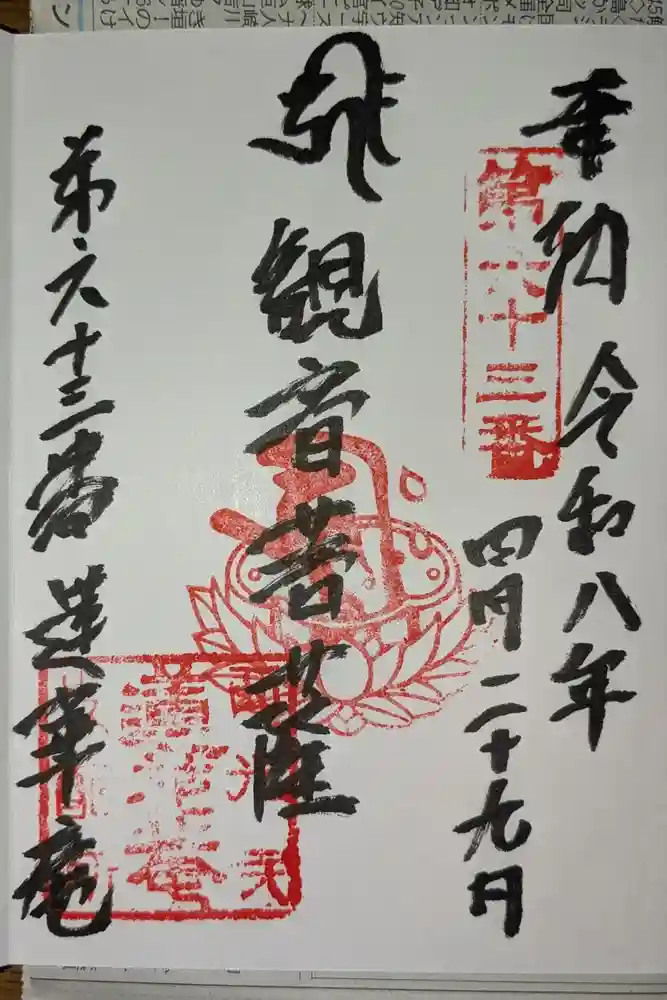 奉納
令和八年
四月二十九日
第六十三番
観音菩薩
第六十三番
蓮華庵